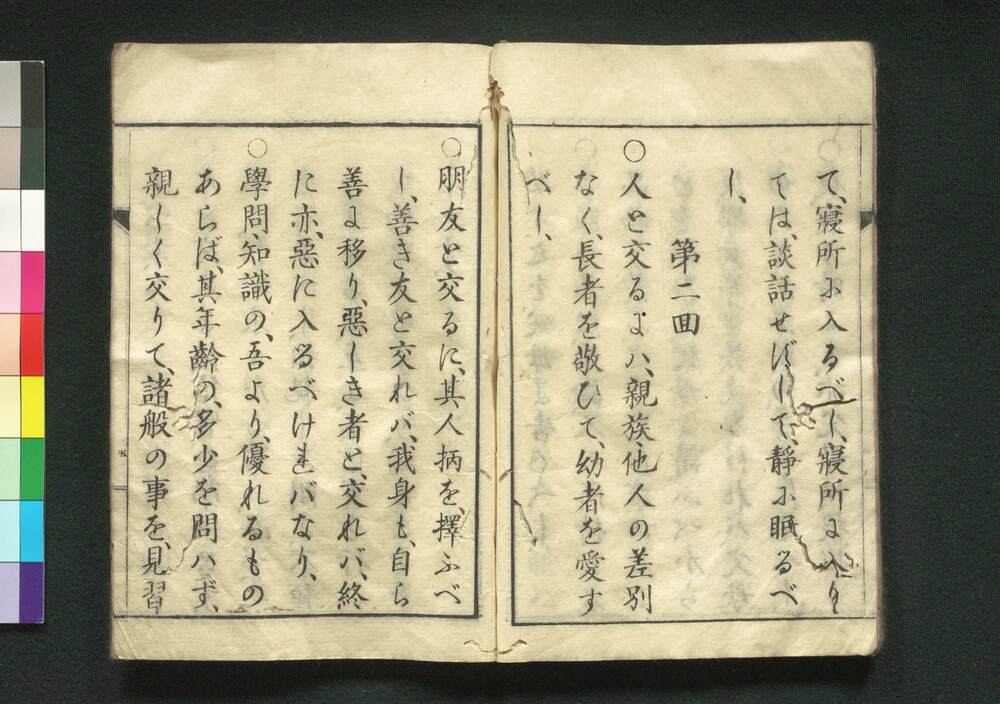 て、寢所に入るべし、寢所に入り
ては、談話せずして、靜に眠るべ
し、
第二回
○人と交るにハ、親族、他人の差別
なく、長者を敬ひて、幼者を愛す
べし、
○朋友と交るに、其人柄を、擇ふべ
し、善き友と交れバ、我身も、自ら
善に移り、惡しき者と、交れバ、終
に亦、惡に入るべけれバなり、
○學問、知識の、吾より、優れるもの
あらば、其年齡の、多少を問ハず、
親しく交りて、諸般の事を、見習
五